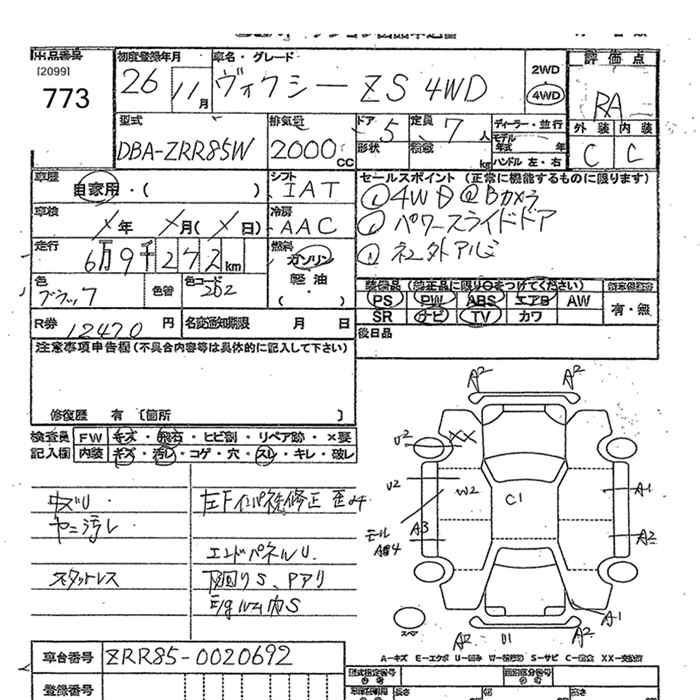 出品番号
[2099]
773
初度登録年月
26年 11月
車名・グレード
ヴォクシー ZS 4WD
2WD
4WD
評価点
RA
外装 内装
C C
型式
DBA-ZRR85W
排気量
2000 CC
ドア 5
形状
定員 7 人
積載 kg
ディーラー・並行
モデル年式 年
ハンドル 左・右
車歴
自家用・( )
シフト
IAT
車検
年 月( 日)
冷房
AAC
走行
6万9千272km
燃料
ガソリン
軽油
・( )
色
ブラック
色替
色コード
202
R券 12470 円
名変通知期限 月 日
セールスポイント (正常に機能するものに限ります)
①4WD ②Bカメラ
① パワースライドドア
① 社外アルミ
装備品 (純正品に限り○をつけてください)
PS PW ABS エアB AW
SR ナビ TV カワ
有・無
後日品
注意事項申告欄 (不具合内容等は具体的に記入して下さい)
修復歴 有 〔箇所 〕
検査員記入欄
FW キズ・飛石・ヒビ割・リペア跡・×要
内装 キズ・汚レ・コゲ・穴・スレ・キレ・破レ
内ズレ
ヤニ汚レ
スタットレス
エンドパネルU.
下廻りS、Pアリ
E/gルーム内S
A2 A2
U2 XX
U2 W2 C1 A1
モール A3 A2
A1
スペア
A2 U1 A2
A-キズ E-エクボ U-凹み W-補修跡 S-サビ C-腐食 XX-交換済
車台番号 ZRR85-0020692
登録番号
型式指定番号
類別区分番号